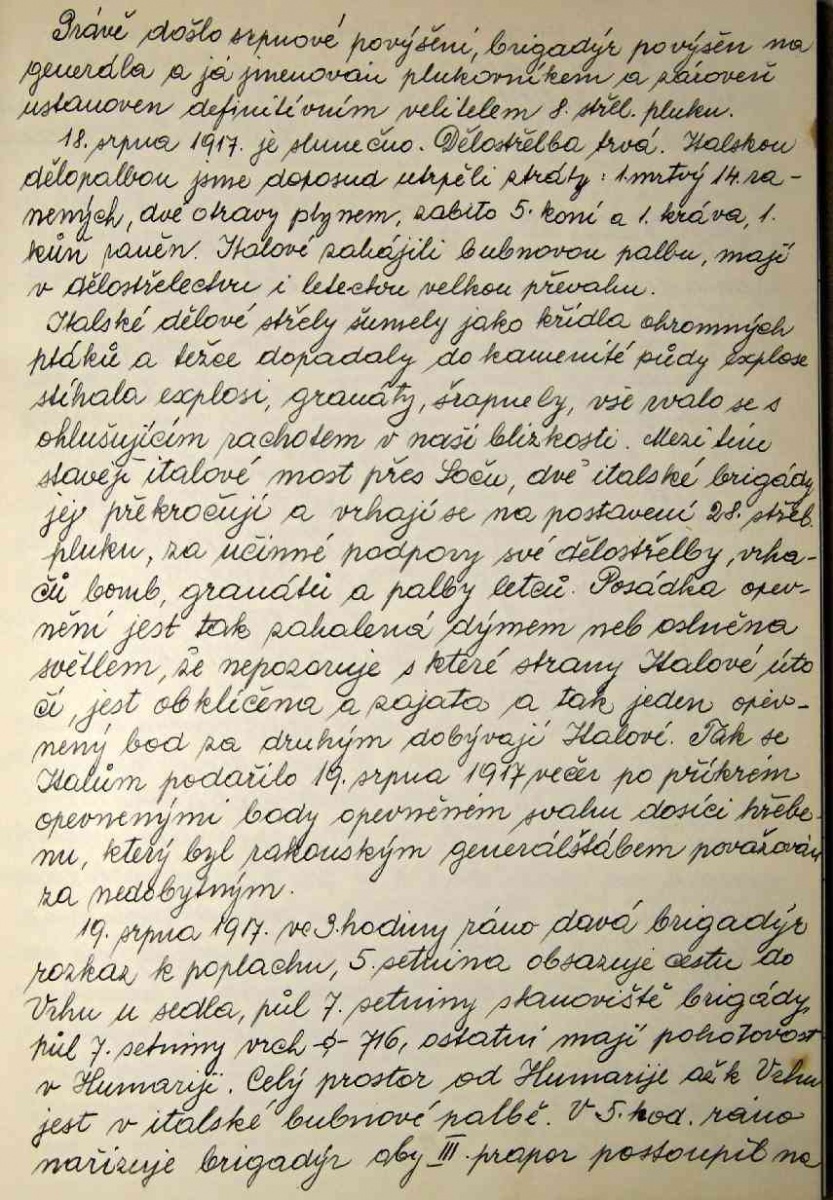 Právě došlo srpnové povýšení, brigadýr povýšen na
generála a já jmenován plukovníkem a zároveň
ustanoven definitívním velitelem 8. střel. pluku.
18. srpna 1917. je slunečno. Dělostřelba trvá. Italskou
dělopalbou jsme doposud utrpěli ztráty: 1. mrtvý 14. ra-
nených, dvě otravy plynem, zabito 5. koní a 1. kráva, 1.
kůň raněn. Italové zahájili bubnovou palbu, mají
v dělostřelectvu i letectvu velkou převahu.
Italské dělové střely šumely jako křídla ohromných
ptáků a težce dopadaly do kamenité půdy explose
stíhala explosi, granáty, šrapnely, vše rvalo se s
ohlušujícím rachotem v naší blízkosti. Mezi tím
stavějí italové most přes Soču, dvě italské brigády
jej překročují a vrhají se na postavení 28. střeb.
pluku, za učinné podpory své dělostřelby, vrha-
čů bomb, granátů a palby letců. Posádka opev-
nění jest tak zahalená dýmem neb oslněna
světlem, že nepozoruje s které strany Italové úto
čí, jest obklíčena a zajata a tak jeden opev-
nený bod za druhým dobývají Italové. Tak se
Italům podařilo 19. srpna 1917 večer po příkrém
opevnenými body opevněném svahu dosíci hřebe-
nu, který byl rakouským generálštábem považován
za nedobytným.
19. srpna 1917. ve 3. hodiny ráno davá brigadýr
rozkaz k poplachu, 5. setnina obsazuje cestu do
Vrhu u sedla, půl 7. setniny stanoviště brigády,
půl 7. setniny vrch -o- 716, ostatní mají pohotovost
v Humariji. Celý prostor od Humarije až k Vrhu
jest v italské bubnové palbě. V 5. hod. ráno
nařizuje brigadýr aby III. prapor postoupil na